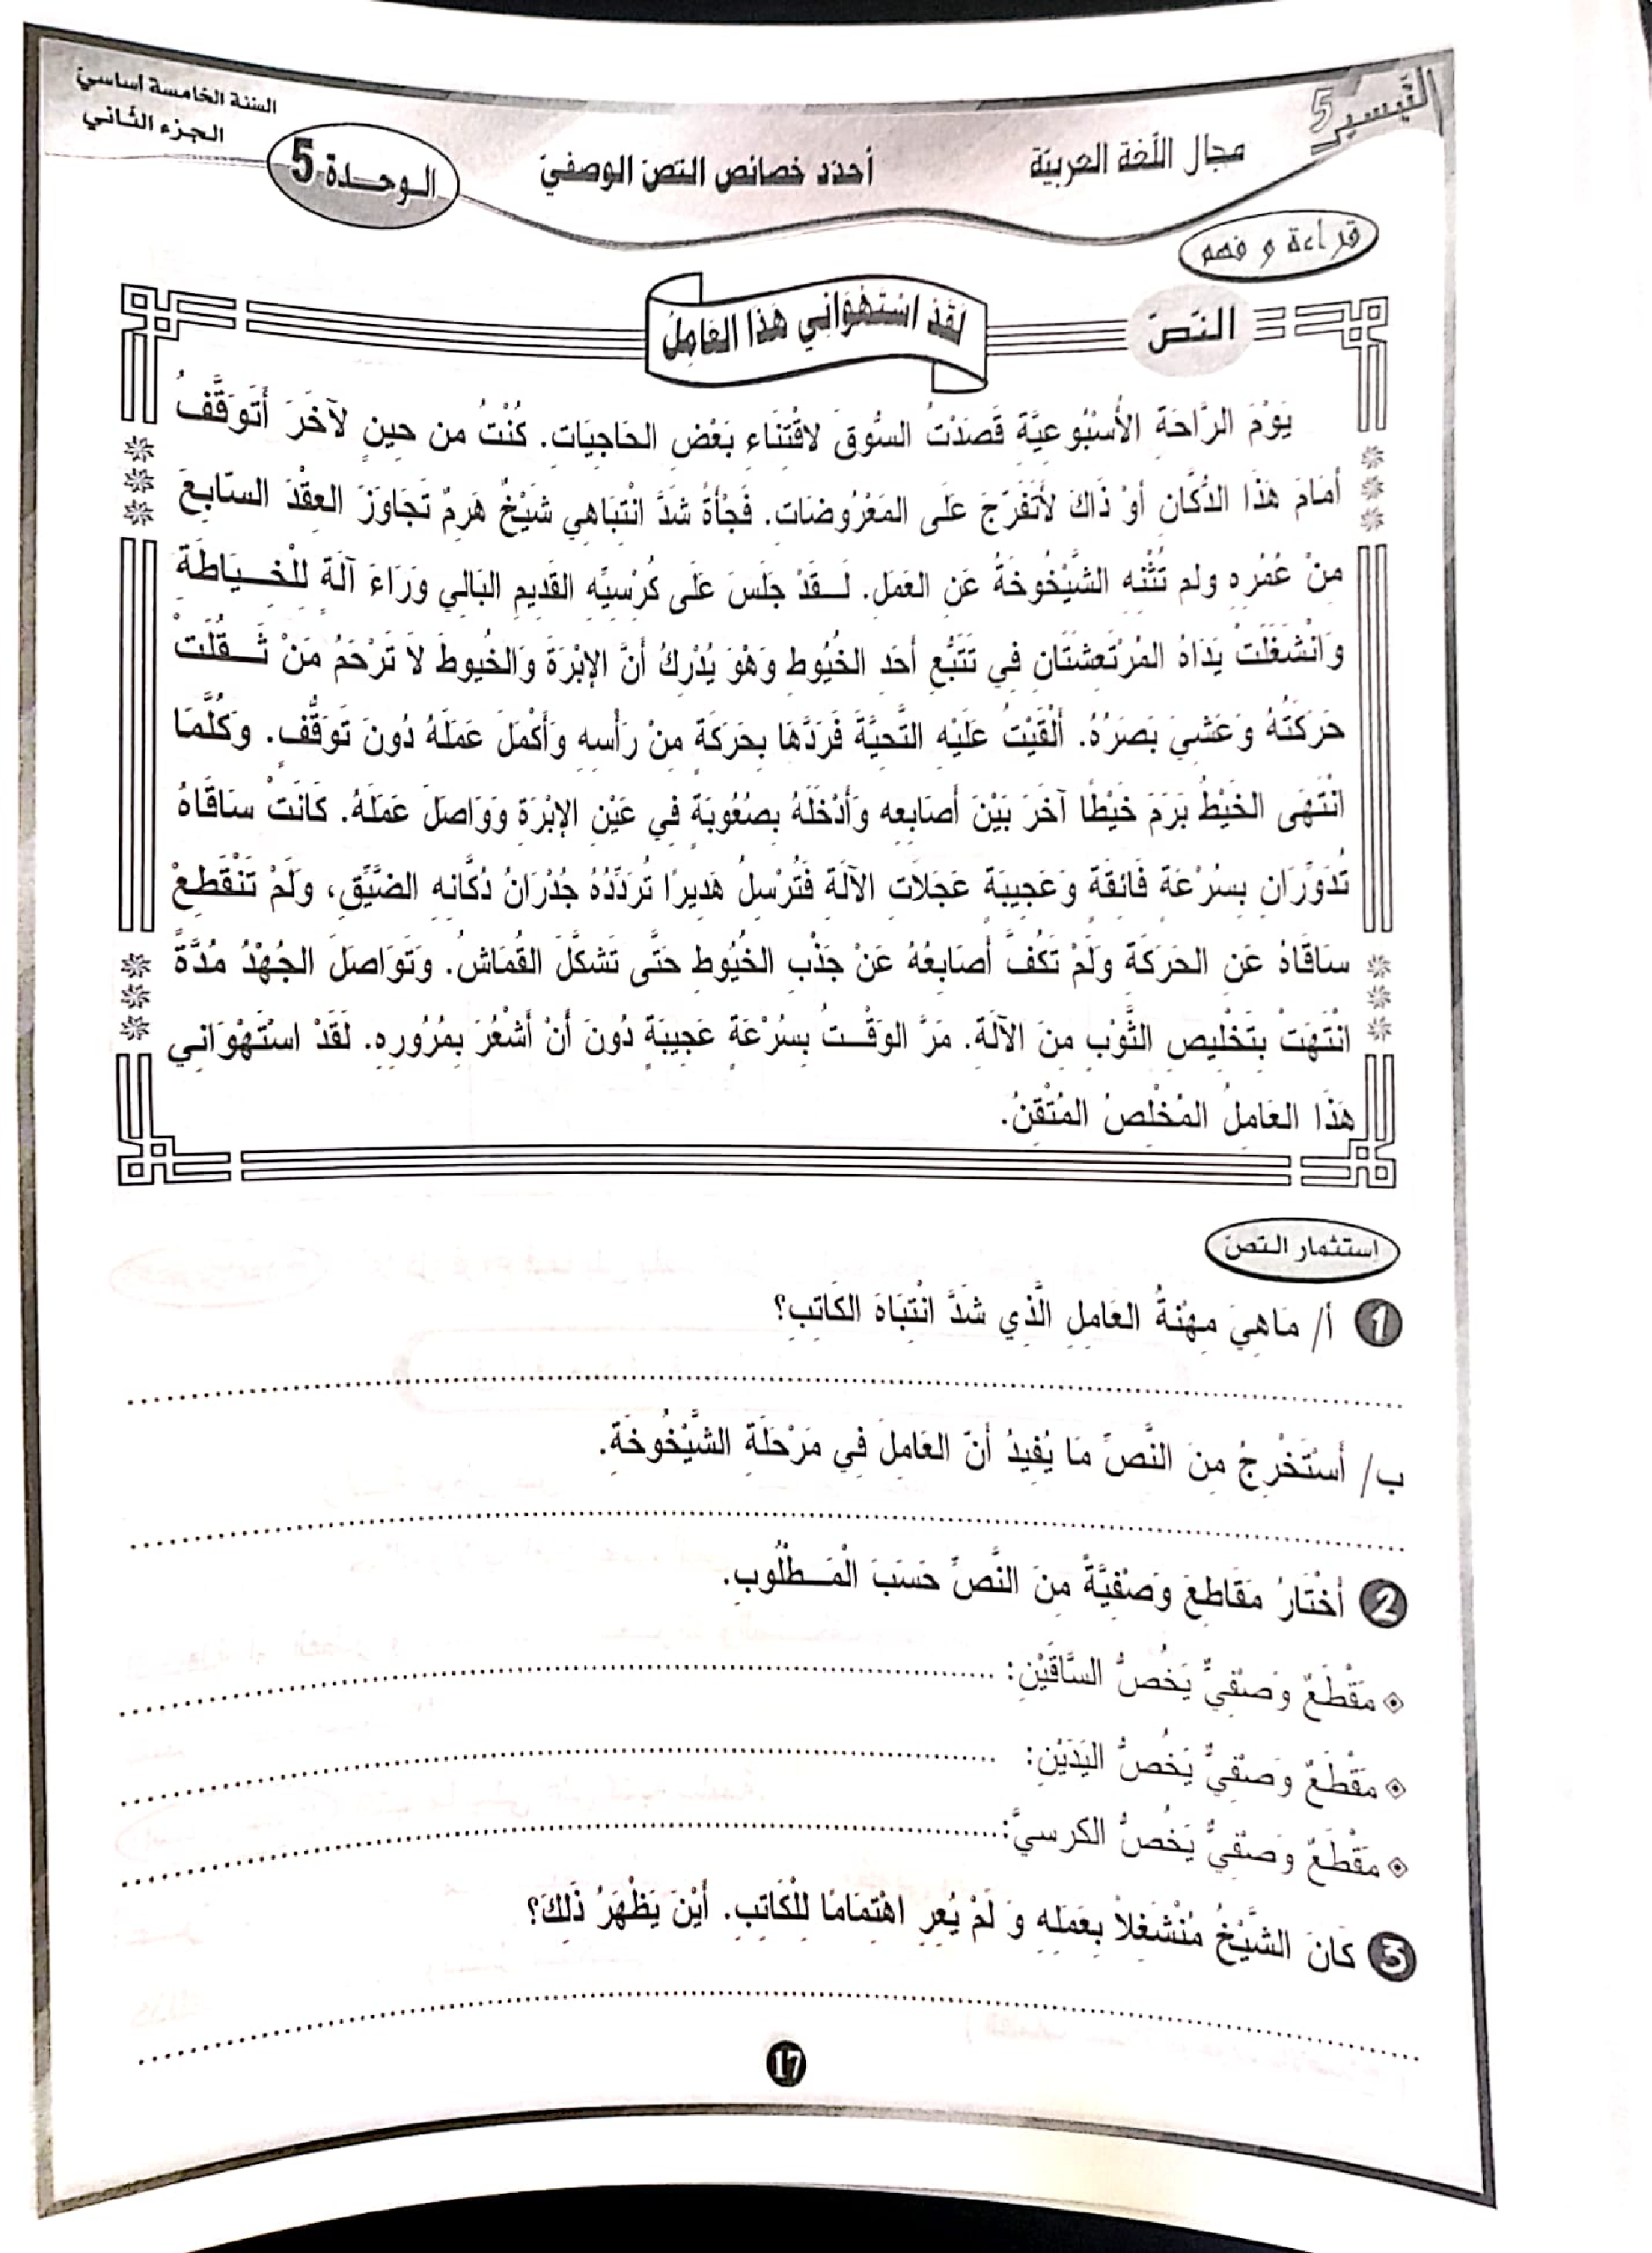 التيسير 5
مجال اللغة العربيّة
أحدّد خصائص النّصّ الوصفيّ
الوحدة 5
السّنة الخامسة أساسيّ
الجزء الثّاني
قراءة و فهم
النّصّ
لَقَدْ اسْتَهْوَانِي هَذَا العَامِلُ
يَوْمَ الرَّاحَةِ الأُسْبُوعِيَّةِ قَصَدْتُ السُّوقَ لاقْتِنَاءِ بَعْضِ الحَاجِيَات. كُنْتُ من حِينٍ لآخَرَ أَتَوَقَّفُ
أمَامَ هَذَا الدُّكَّانِ أوْ ذَاكَ لأَتَفَرَّجَ عَلَى المَعْرُوضَات. فَجْأةً شَدَّ انْتِبَاهِي شَيْخٌ هَرِمٌ تَجَاوَزَ العِقْدَ السّابِعَ
مِنْ عُمُرِه ولم تُثْنِه الشَّيْخُوخَةُ عَنِ العَمَلِ. لَقَدْ جَلَسَ عَلَى كُرْسِيِّهِ القَدِيمِ البَالِي وَرَاءَ آلَةٍ لِلْخِيَاطَةِ
وَانْشَغَلَتْ يَدَاهُ المُرْتَعِشَتَانِ فِي تَتَبُّعِ أحَدِ الخُيُوطِ وَهْوَ يُدْرِكُ أنَّ الإبْرَةَ وَالخُيوطَ لاَ تَرْحَمُ مَنْ ثَقُلَتْ
حَرَكَتُهُ وَعَشِيَ بَصَرُهُ. أَلْقَيْتُ عَلَيْهِ التَّحِيَّةَ فَرَدَّهَا بِحَرَكَةٍ مِنْ رَأْسِهِ وَأَكْمَلَ عَمَلَهُ دُونَ تَوَقُّفٍ. وَكُلَّمَا
انْتَهَى الخَيْطُ بَرَمَ خَيْطًا آخَرَ بَيْنَ أصَابِعِه وَأدْخَلَهُ بِصُعُوبَةٍ فِي عَيْنِ الإبْرَةِ وَوَاصَلَ عَمَلَهُ. كَانَتْ سَاقَاهُ
تُدَوِّرَانِ بِسُرْعَةٍ فَائِقَةٍ وَعَجِيبَةٍ عَجَلاَتِ الآلَةِ فَتُرْسِلُ هَدِيرًا تُرَدِّدُهُ جُدْرَانُ دُكَّانِهِ الضَّيِّقِ، وَلَمْ تَنْقَطِعْ
سَاقَاهُ عَنِ الحَرَكَةِ وَلَمْ تَكُفَّ أصَابِعُهُ عَنْ جَذْبِ الخُيُوطِ حَتَّى تَشَكَّلَ القُمَاشُ. وَتَوَاصَلَ الجُهْدُ مُدَّةً
انْتَهَتْ بِتَخْلِيصِ الثَّوْبِ مِنَ الآلَةِ. مَرَّ الوَقْتُ بِسُرْعَةٍ عَجِيبَةٍ دُونَ أنْ أَشْعُرَ بِمُرُورِهِ. لَقَدْ اسْتَهْوَانِي
هَذَا العَامِلُ المُخْلِصُ المُتْقِنُ.
إستثمار النّصّ
1 أ/ مَاهِيَ مِهْنَةُ العَامِلِ الَّذِي شَدَّ انْتِبَاهَ الكَاتِبِ؟
ب/ أسْتَخْرِجُ مِنَ النَّصِّ مَا يُفِيدُ أنّ العَامِلَ فِي مَرْحَلَةِ الشَّيْخُوخَةِ.
2 أخْتَارُ مَقَاطِعَ وَصْفِيَّةً مِنَ النَّصِّ حَسَبَ الْمَطْلُوبِ.
مَقْطَعٌ وَصْفِيٌّ يَخُصُّ السَّاقَيْنِ:
مَقْطَعٌ وَصْفِيٌّ يَخُصُّ اليَدَيْنِ:
مَقْطَعٌ وَصْفِيٌّ يَخُصُّ الكرسيَّ:
3 كَانَ الشَّيْخُ مُنْشَغِلاً بِعَمَلِهِ وَ لَمْ يُعِرِ اهْتِمَامًا لِلْكَاتِبِ. أَيْنَ يَظْهَرُ ذَلِكَ؟
17